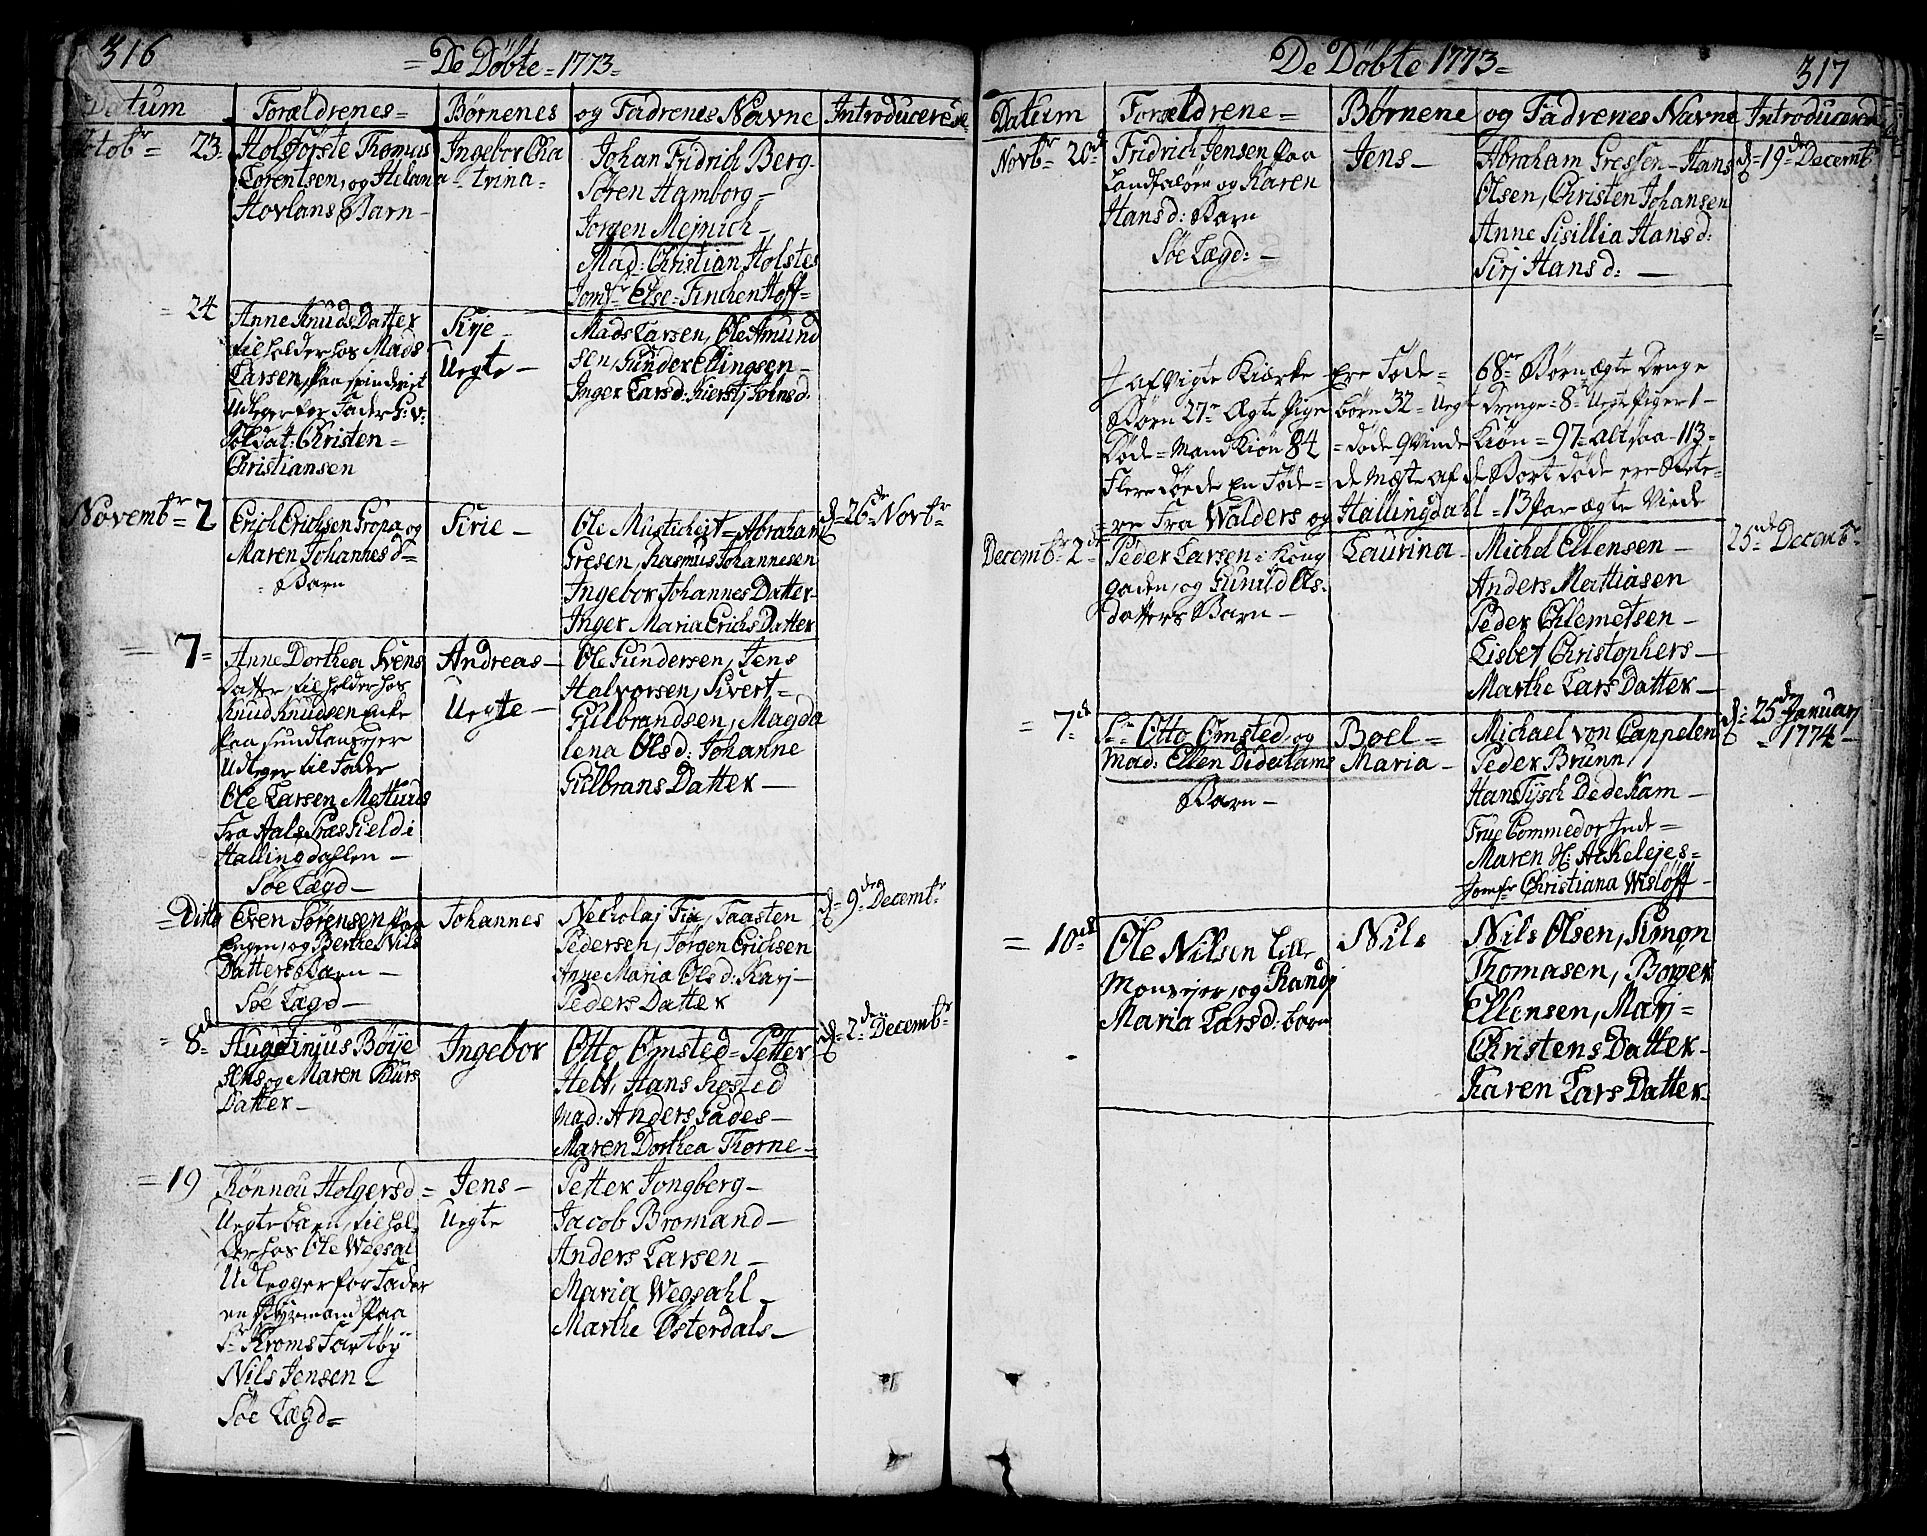 316
= De Döbte = 1773 =
Datum Forældrenes = Børnenes og Fadrenes Navne Introducerese
Octobr = 23 =
Holsförste Thomas
Lorentsen, og Helana
Hovlans Barn -
Ingebor Cha
= trina =
Johan Fridrich Berg -
Sören Hamborg -
Jørgen Mejnich -
Mad: Christian Holstes
Jomfr Else = Finchenhoff =
= 24
Anne Knuds Datter
til holder hos Mads
Larsen, paa
Udleger for Fader
Soldat: Christen =
Christiansen
Sirje -
Uegte -
Mads Larsen, Ole Amund
sen, Gunder Ellingsen -
Inger Larsd: Kierstj Johnsd:
Novembr = 2
Erich Erichsen Gropa og
Maren Johannesd =
Barn
Sirie -
Ole Musticheit = Abraham
Gresen, Rasmus Johannesen
Ingebor Johannes Datter -
Inger Maria Erichs Datter
d = 26de Novbr
= 7 =
Anne Dorthea Svens
Datter, til holder hos
Knud Knudsen Enke
paa
Udleger til Fader
Ole Larsen
Fra Aals Præs Gield i
Hallingdahlen -
Söe Lægd -
Andreas -
Uegte -
Ole Gundersen, Jens
Halvorsen, Sivert =
Gulbrandsen, Magda
lena Olsd: Johanne
Gulbrans Datter -
= Ditto
Even Sørensen paa
Engen, og Berthe Nils
Datters Barn -
Söe Lægd -
Johannes
Necholaj Fia, Taasten
Pedersen, Jørgen Erichsen
Anne Maria Olsd: Karj -
Peders Datter
d = 9de Decembr
= 8de
Augustinius Böije
sens og Maren Kurs
Datter -
Ingebor
Otto Omsted = Petter
Helt, Hans Rosted
Mad: Anders Gades -
Maren Dorthea Thorne =
d = 2den Decembr
= 19
Rönnou Holgersd =
Uegte barn, til hol
der hos Ole Wegsal
Udlegger for Fader
en paa
Sr Kroms Fartöy
Nils Jensen
Söe Lægd =
Jens -
Uegte
Petter Jongberg -
Jacob Bromand -
Anders Larsen -
Maria Wegsahl -
Marthe Østerdals -
De Döbte 1773 =
317
Datum Forældrene = Børnene og Fadrenes Navne Introducered
Novbr = 20d
Fridrich Jensen paa
Landfaløen og Karen
Hansd: Barn
Söe Lægd: -
Jens -
Abraham Gressen - Hans
Olsen, Christen Johansen
Anne Sisillia Hansd:
Sirj Hansd: -
d = 19de Decemb
afvigte Kierke ere Föde = 68re Börn, ægte Drenge
Börn 27re Ægte Pige börn 32 = Uegt Drenge = 8 = Uegte Piger 1 -
Döde = Mand Kiön 84 = döde Qvinde Kiön = 97 = alt saa - 113 =
Flere döede en Föde = de Meste af de Bort döde ere Rete =
re Fra Walders og Hallingdahl = 13 Par ægte Viede
Decembr = 2de
Peder Larsen i Kong
gaden, og Gunild Ols =
datters Barn -
Laurina -
Michel Ellensen -
Anders Mattiasen
Peder Chlemetsen -
Lisbet Christophers -
Marthe Lars Datter -
25de Decembr
= 7de
Sr Otto Omsted og
Mad: Ellen Dideilams
Barn -
Boel =
Maria -
Michael von Cappelen
Peder Brunn
Hans Tÿsch Dedekam -
Frue Commedor Inde =
Maren H: Arkelejes =
Jomfr Christiana Wislöff -
d: 25de January
= 1774 -
= 10de
Ole Nilsen Lille
Monsejer, og Randj
Maria Larsd: barn
Nils
Nils Olsen, Simon
Thomasen, Börger
Ellensen, Marj =
Christens Datter -
Karen Lars Datter -